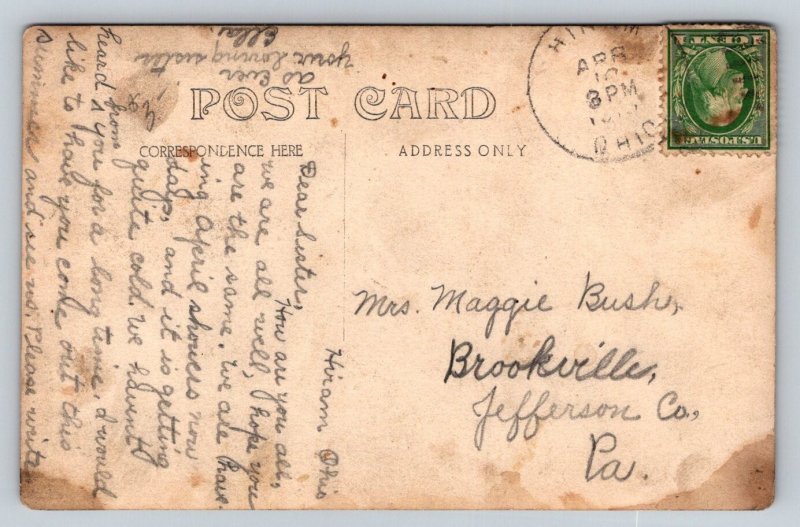 POST CARD
CORRESPONDENCE HERE
ADDRESS ONLY
HIRAM
APR
3 PM
OHIO
U.S. POSTAGE
Mrs. Maggie Bush,
Brookville,
Jefferson Co.,
Pa.
Hiram Ohio
Dear Sister,
How are you all,
we are all well, hope you
are the same. We are hav-
ing April showers now
days, and it is getting
quite cold. We havent
heard from
you for a long time. I would
like to have you come out this
summer and see us. Please write
as Ever
your loving sister
Ella